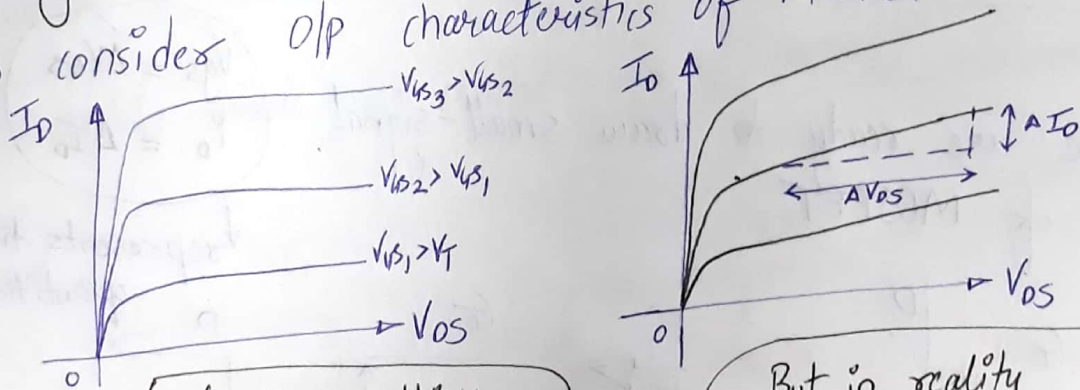 consider O/p characteristics of
I_D
V_GS3 > V_GS2
V_GS2 > V_GS1
V_GS1 > V_T
V_DS
0
I_D
Δ I_D
Δ V_DS
V_DS
0
But in reality